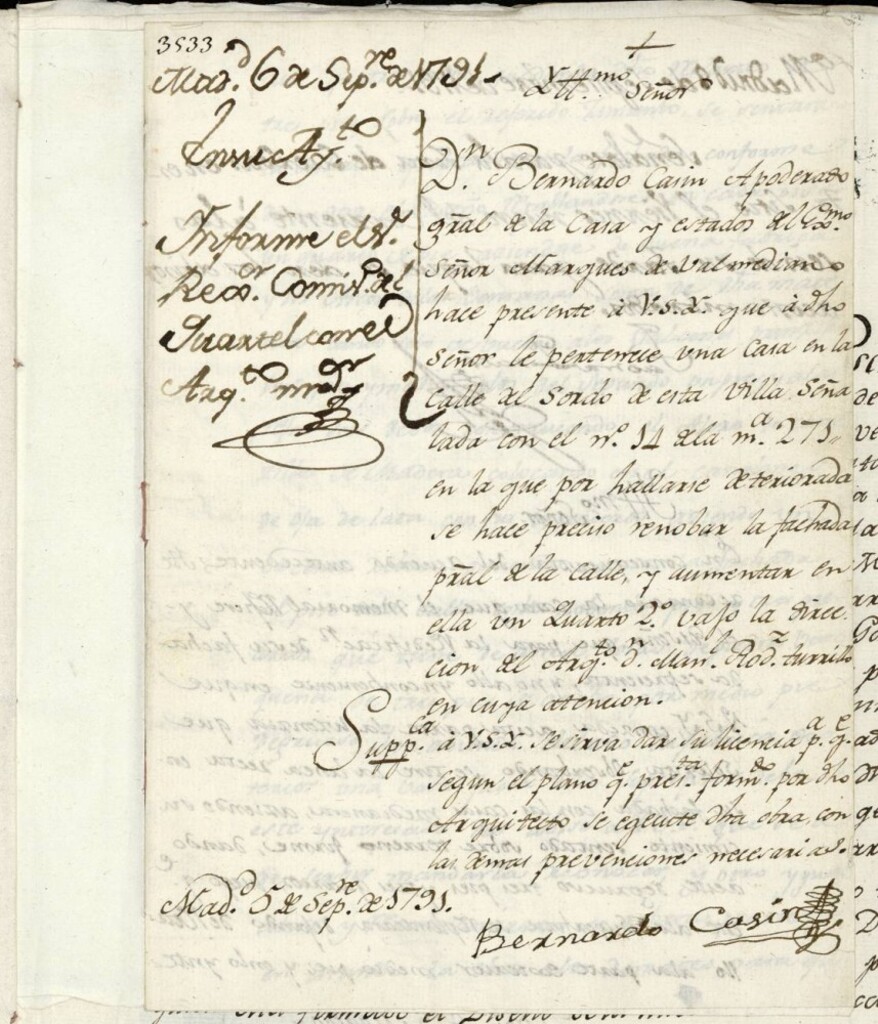 3533
Mad.d 6 de Sep.re de 1791.
En su Ay.to
Informe el S.r
Rexor. Comis.o del
Quartel con el
Arq.to mor
+
Yll.mo Señor
D.n Bernardo Casin Apoderado
gral de la Casa y estados del Exmo.
Señor Marques de Valmediano
hace presente à V.S.Y. que à dho
Señor le pertenece una Casa en la
Calle del Sordo de esta Villa Seña
lada con el nº. 14 de la m.a 271.
en la que por hallarse deteriorada
se hace preciso renobar la fachada
pral de la Calle, y aumentar en
ella vn Quarto 2.º vajo la direc
cion del Arq.to d.n Man.l Rod.z turrillo
en cuya atencion.
Supp.ca à V.S.Y. se sirva dar su licencia p.a q.e
segun el plano q.e pres.ta form.do por dho
Arquitecto se egecute dha obra, con
las demas prevenciones necesarias.
Mad.d 5 de Sep.re de 1791.
Bernardo Casin